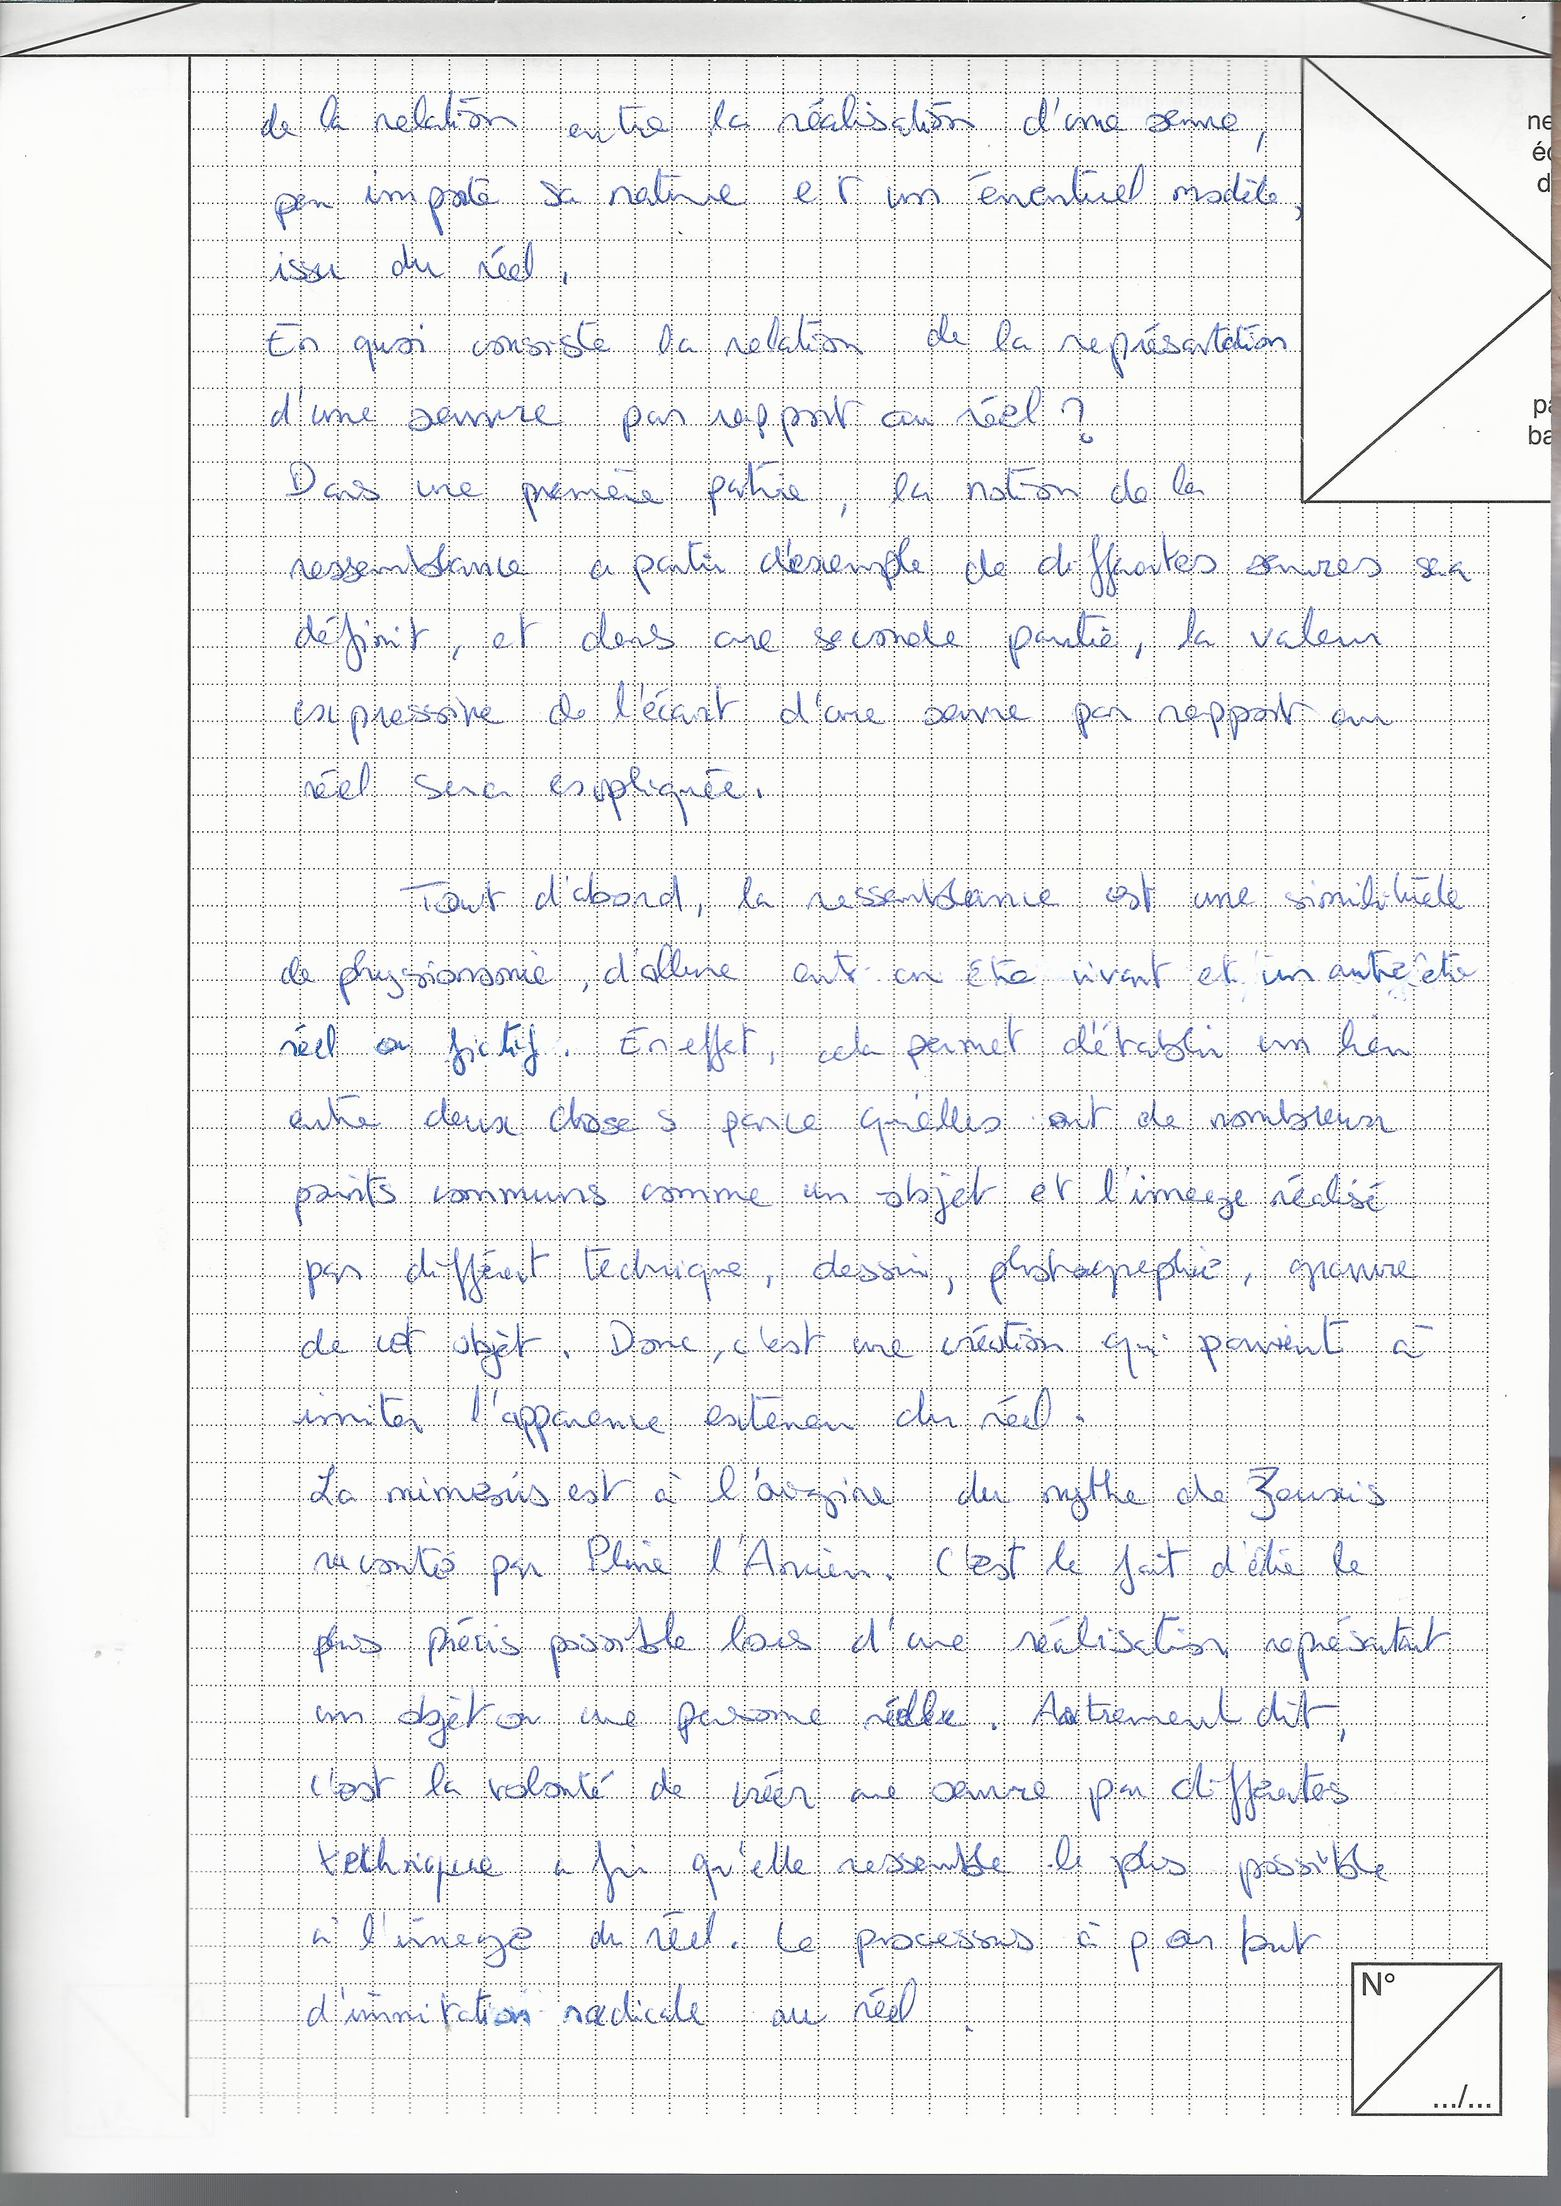 de la relation entre la réalisation d'une œuvre,
peu importe sa nature et un éventuel modèle,
issu du réel.
En quoi consiste la relation de la représentation
d'une oeuvre par rapport au réel ?
Dans une première partie, la notion de la
ressemblance a partir d'exemple de différentes œuvres sera
définit, et dans une seconde partie, la valeur
expressive de l'écart d'une œuvre par rapport au
réel sera expliquée.
Tout d'abord, la ressemblance est une similitude
de physionomie, d'allure entre un être vivant et un autre être
réel ou fictif. En effet, cela permet d'établir un lien
entre deux choses parce qu'elles ont de nombreux
points communs comme un objet et l'image réalisé
par différent technique, dessin, photographie, gravure
de cet objet. Donc, c'est une création qui parvient à
imiter l'apparence extérieur du réel.
La mimésis est à l'origine du mythe de Zeuxis
raconté par Pline l'Ancien. C'est le fait d'être le
plus précis possible lors d'une réalisation représentant
un objet ou une personne réelle. Autrement dit,
c'est la volonté de créer une œuvre par différentes
technique a fin qu'elle ressemble le plus possible
à l'image du réel. Le processus à pour but
d'immitation radicale au réel.
ne
éc
d
pa
ba
N°
.../...